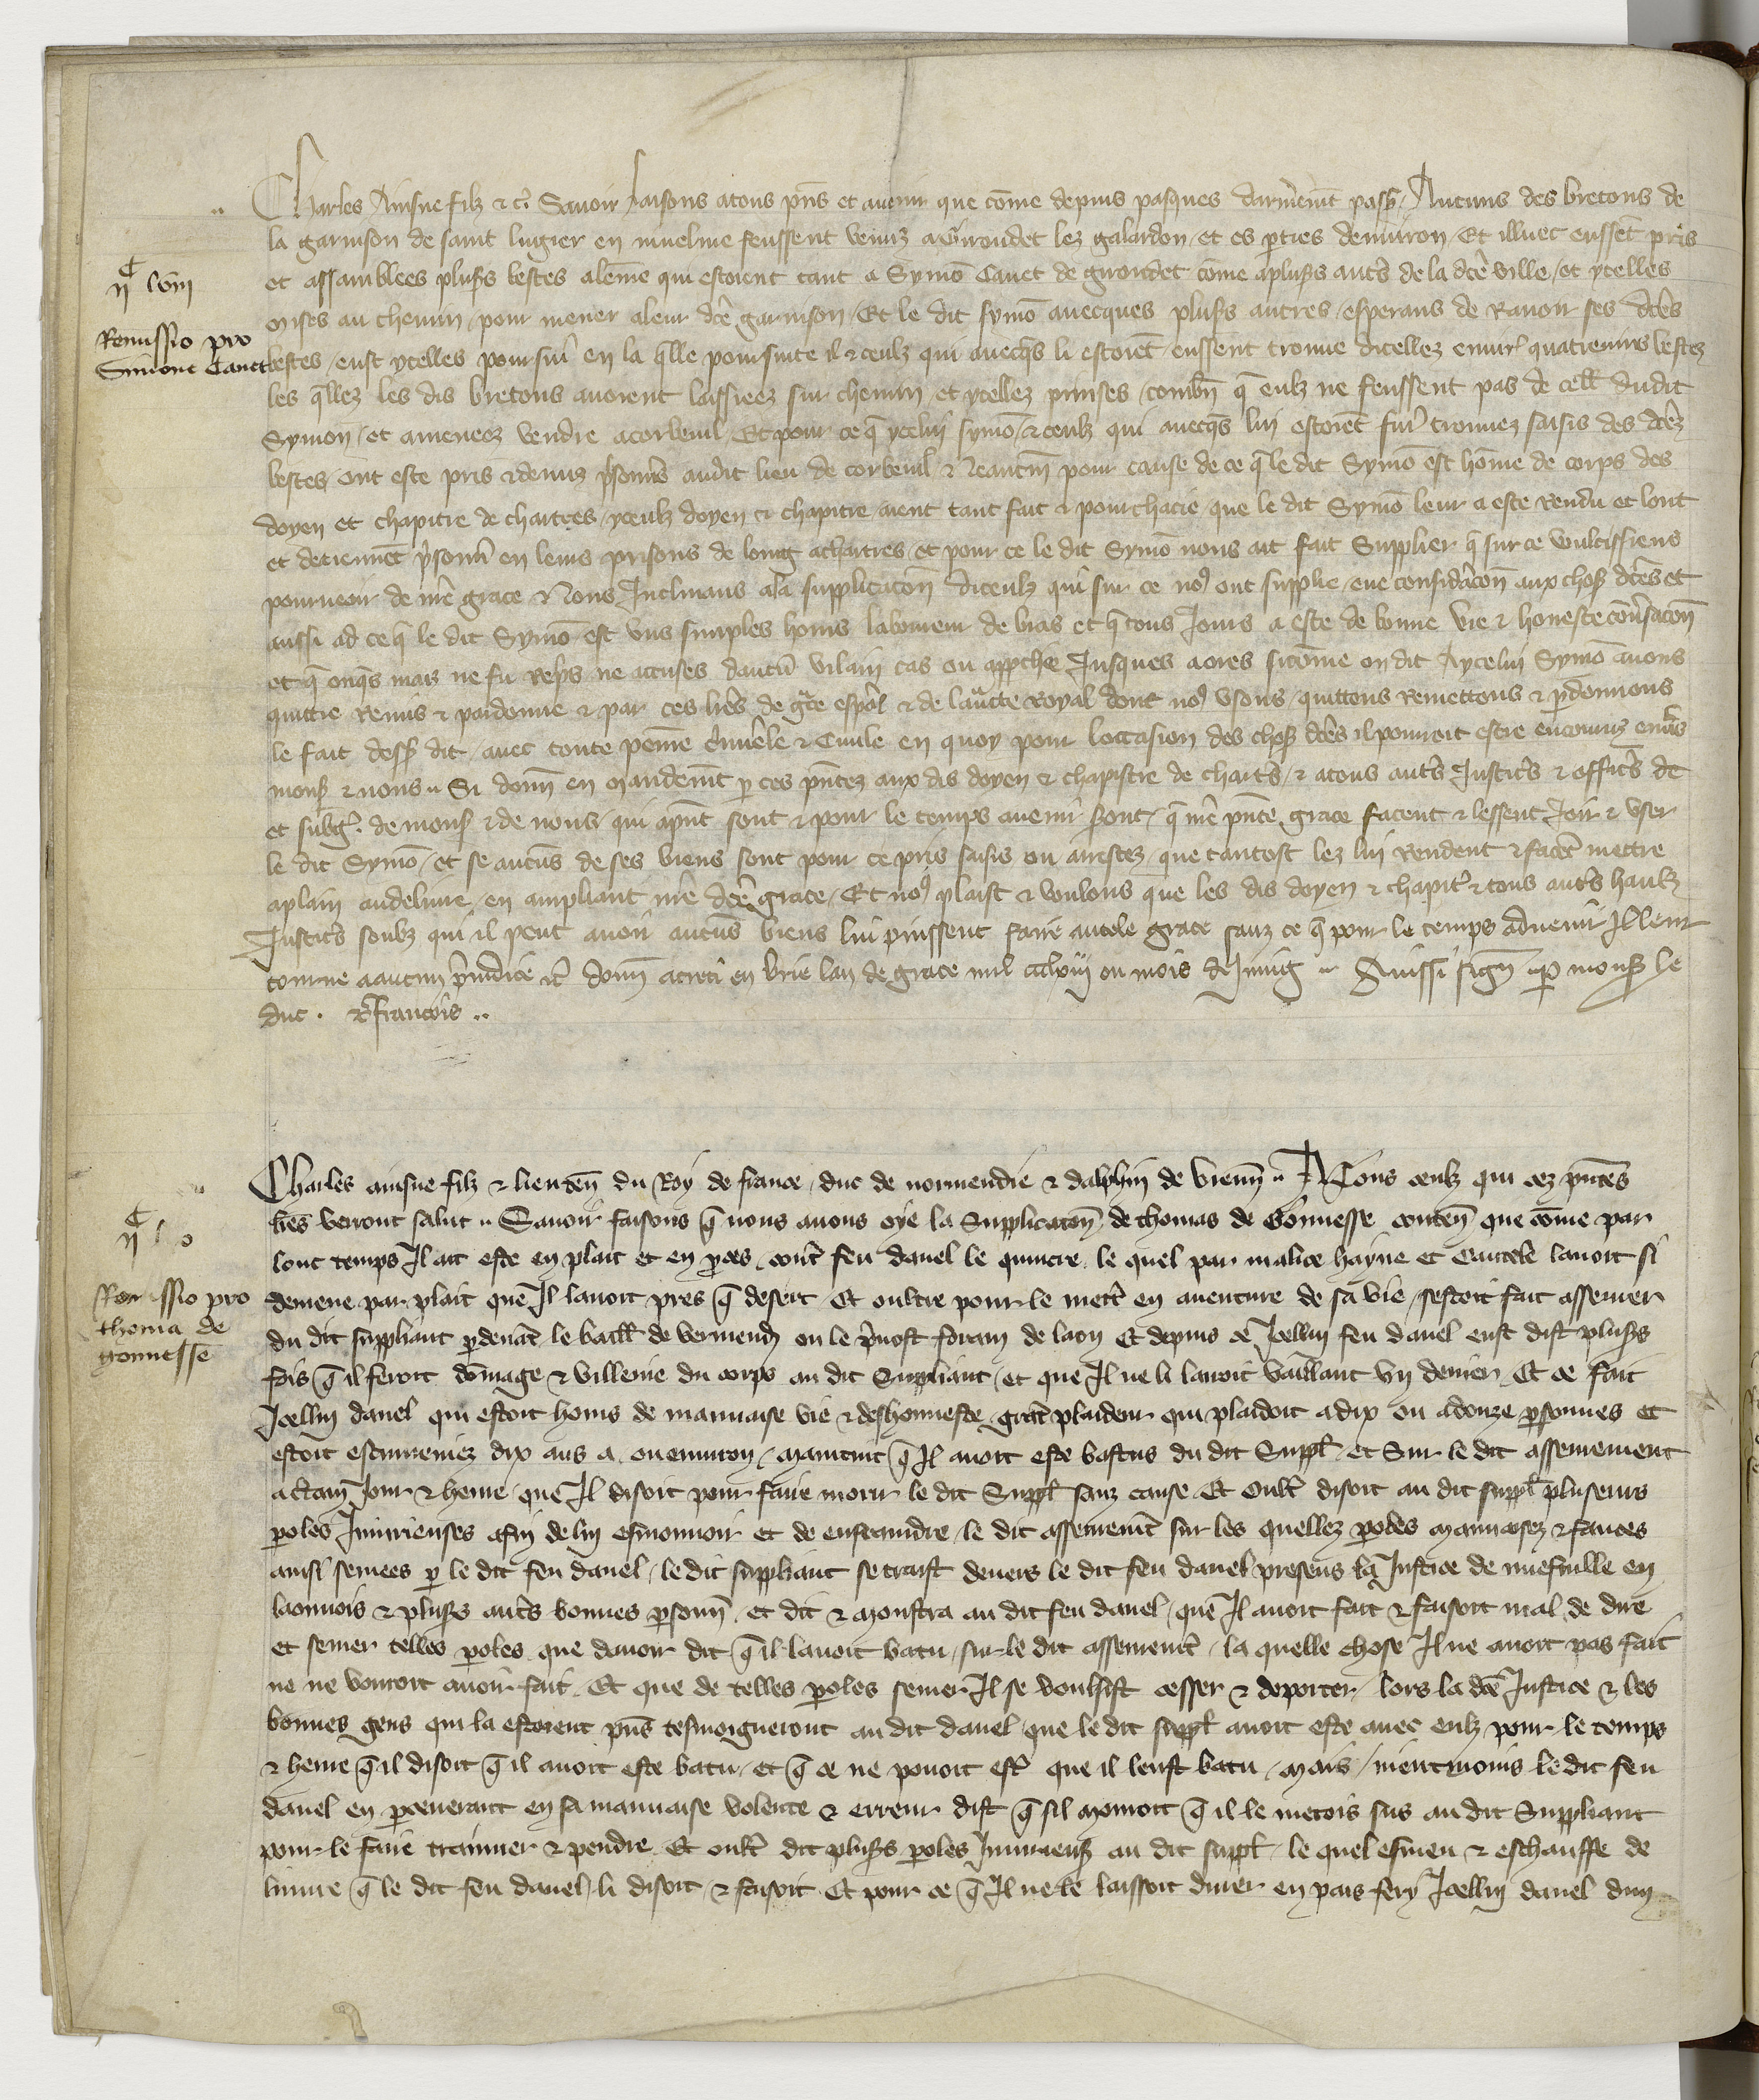 Charles Ainsne filz & cͥ Savoir faisons a tous pñs et avenir que cõme depuis pasques darreniemt passẽ / Aucuns des bretons de
la garnison de saint lugier en nuelme feussent venuz a Girondet lez galardon / et es pties denviron / Et illuec eussẽt pris
et assamblees plusrs bestes alẽme qui estoient tant a Symõ Canet de girondet cõme a plusrs autrs de la dcẽ ville / et ycelles
mises au chemin / pour mener a leur dcẽ garnison / Et le dit symõ avecques plusrs autres / esperans de Ravoir ses dcẽs
bestes / eust ycelles poursui en la qlle poursuite il & ceulz qui avecqs li estoiẽt / eussent trouve dicellez envirõ quatrevins bestez
les qllez les dis bretons avoient laissieez sur chemin / et ycellez prinses / combñ q eulz ne feussent pas de cell dudit
Symon / et ameneez vendre a corbeuil / Et pour ce q ycelui symõ / & ceulz qui avecqs lui estoiẽt furẽ trouvez saisis des dcẽz
bestes ont este pris & detenuz psonnrs audit lieu de corbeuil & Neantm pour cause de ce q le dit Symõ est hõme de corps des
doyen et chapitre de chartres / yceulz doyen & chapitre aient tant fait & pourchacie que le dit Symõ leur a este Rendu et lont
et detiennẽt psonnr en leurs prisons de loing a chartres / et pour ce le dit Symõ nous ait fait Supplier q sur ce voulcissiens
pourveoir de nrẽ grace & Nous Inclinans a la supplicacõn diceulz qui sur ce noz ont supplie / eue considacõn aux chosz dcẽs et
aussi ad ce q le dit Symõ est uns simples homs laboureur de bras et q tous Jours a este de bonne vie & honeste cõnvsacõn
et q onqs mais ne fu Repris ne accuses daucũ vilain cas ou reproche Jusques a ores si cõme on dit A ycelui Symõ avons
quittie Remis & pardonne & par ces lrẽs de grace espãl & de lauctte Royal dont noz usons / quittons Remettons & pdonnons
le fait dessz dit / avec toute peine criminele & Civile en quoy pour loccasion des chosz dcẽs il pourroit estre encouruz envrs
monsz & nous .. Si donn en mandemẽt p ces pñtez aux dis doyen & chapistre de chartrs / & a tous autrs Justicrs & officrs de
et subgz . de monsz & de nous / qui apñt sont & pour le temps avenir sront / q nrẽ pñte grace facent & lessent Joir & user
le dit Symõ / et se aucũs de ses biens sont pour ce pris saisis ou arrestez / que tantost lez lui Rendent & facẽt mettre
a plain au delivre / en ampliant nrẽ dcẽ grace / Et noz plaist & voulons que les dis doyen & chapitr & tous autrs haulz
Justicrs soubz qui il peut avoir aucũs biens lui puissent faire autele grace sanz ce q pour le temps advenir Il leur
tourne a aucun preiudice &c donn a creci en brie lan de grace mil ccclviij ou mois de Juing .. Ainssi sign .. p monsz le
duc . &c francois ..
Remissio pro
Simone Canet
Charles ainsne filz & lieuten̄ du Roy de france / duc de normendie & dalphin de vienñ .. A Tous ceulz qui cez pñtes
lrẽs verront salut .. Savoir faisons q nous avons oye la Supplicacõn de thomas de Gonnesse conten̄ que cõme par
lonc temps Il ait este en plait et en pces contr feu danel le quintre le quel par malice hayne et Cautele lavoit si
demene par plait que Il lavoit pres q desert Et oultre pour le metr en aventure de sa vie / sestoit fait assseurer
du dit suppliant pdevãt le baill de vermend ou le pvost forain de laon Et depuis ce Icellui feu danel eust dist plusrs
fois q il feroit dõmage & villenie du corps au dit Suppliant / et que Il ne li lavoit vaillant un denier Et ce fait
Icellui danel qui estoit homs de mauvaise vie & deshonneste grãt plaideur qui plaidoit a dix ou a douze psonnes et
estoit escumeniez dix ans a ou environ / maintint q Il avoit este bastus du dit Suppl et Sur le dit asseurement
a ctain Jour & heure que Il disoit pour faire morir le dit Suppl sanz cause Et oultr disoit au dit suppl pluseurs
poles Iniurieuses afin de lui esmouvoir et de enfraindre le dit asseuremẽt sur les quellez poles mauvaisez & fauces
ainsi semees p le dit feu danel / le dit suppliant se traist devers le dit feu danel presens la Justice de nuefville en
laonnois & plusrs autrs bonnes psonn et dit & monstra au dit feu danel que Il avoit fait & faisoit mal de dire
et semer telles poles que davoir dit q il lavoit batu sur le dit asseuremẽt / la quelle chose Il ne avoit pas fait
ne ne vouroit avoir fait Et que de telles poles semer Il se voulsist cesser & deporter / lors la dcẽ Justice & les
bonnes gens qui la estoient pñs tesmoigneront au dit danel que le dit suppl avoit este avec eulz pour le temps
& heure q il disoit q il avoit este batu / et q ce ne pouoit estr que il leust batu / mais / nientmoins le dit feu
danel en pseverant en sa mauvaise volente & erreur dist q sil moroit q il le metoit sus au dit Suppliant
pour le faire trainner & pendre Et oultr dit plusrs poles Iniurieusz au dit suppl / le quel esmeu & eschauffe de
liniure q le dit feu danel li disoit & faisoit Et pour ce q Il ne le laissoit durer en pais fery Icellui danel dun
Remissio pro
thoma de
gonnesse